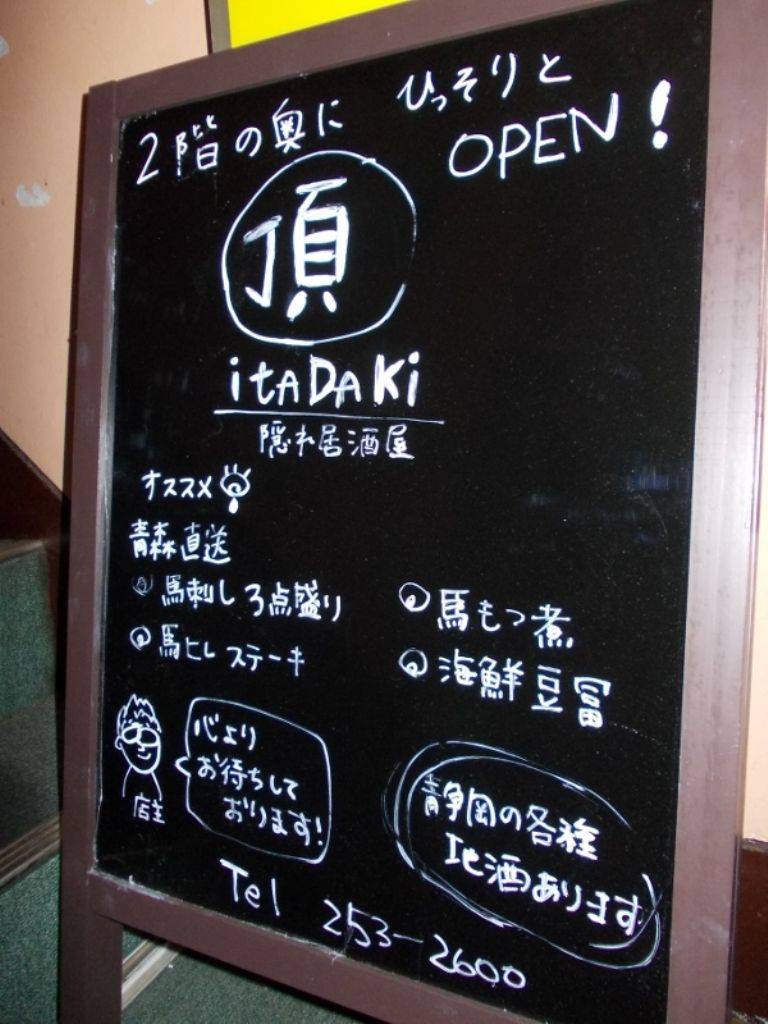 2階の奥に ひっそりと
OPEN!
頂
itADAKi
隠れ居酒屋
オススメ
青森直送
馬刺し3点盛り
馬ヒレステーキ
馬もつ煮
海鮮豆冨
心より
お待ちして
おります!
店主
静岡の各種
地酒あります
Tel 253-2600